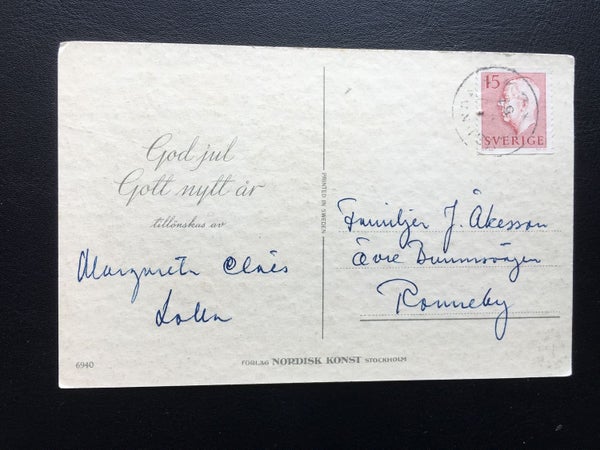 God jul
Gott nytt år
tillönskas av
Margareta Claës
6940
PRINTED IN SWEDEN
FÖRLAG NORDISK KONST STOCKHOLM
15
SVERIGE
Familjen J. Åkesson
Övre Brunnsvägen
Ronneby